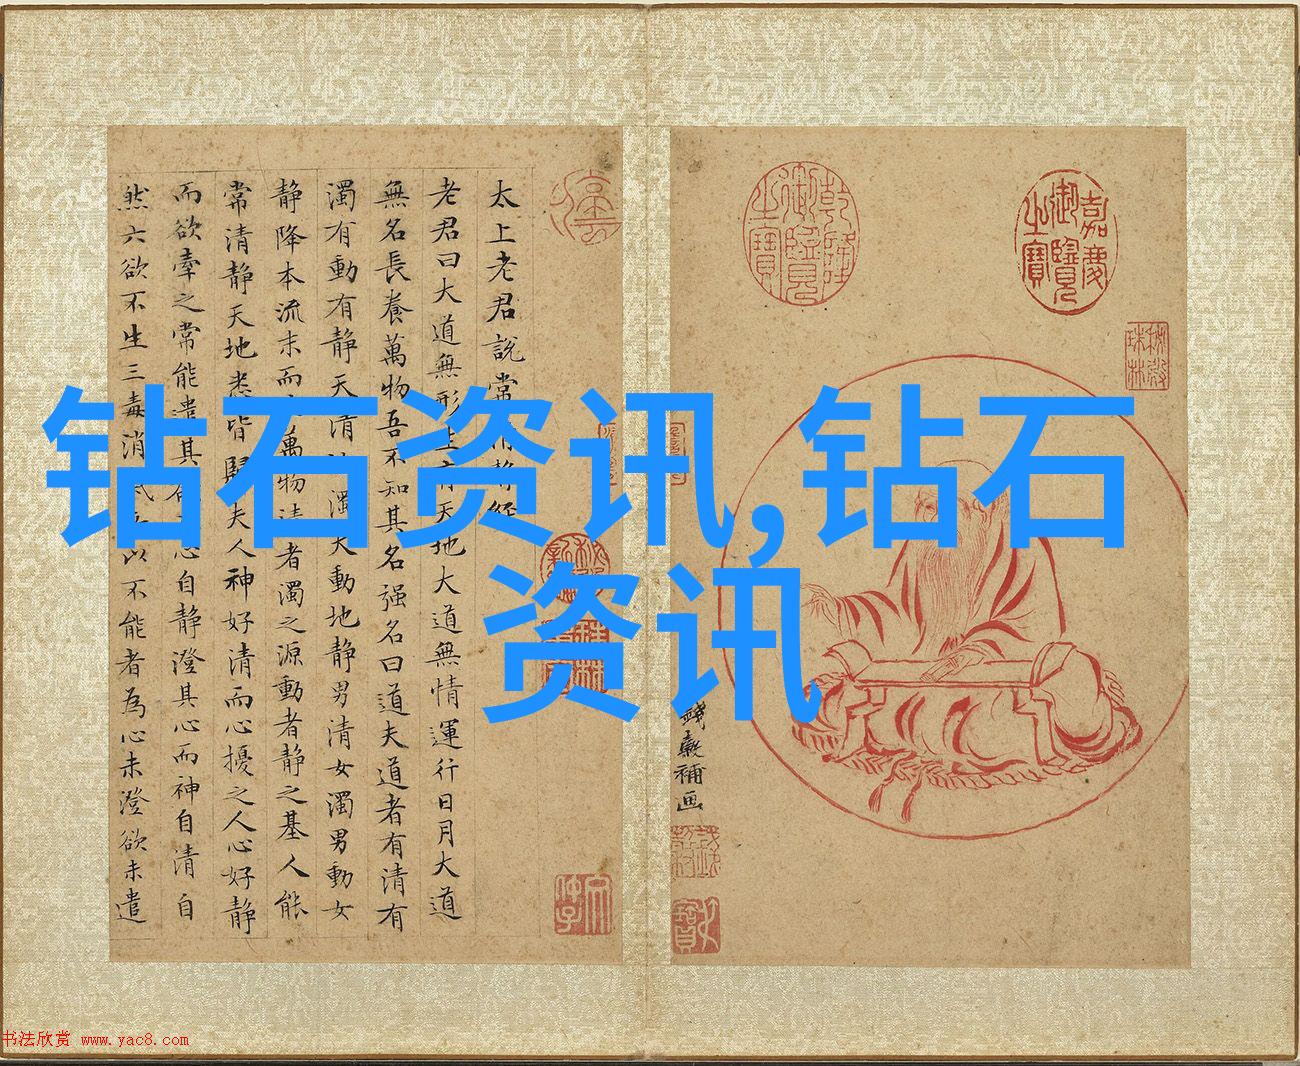 钻石资讯,钻石
资讯
嘉慶御覽之寶
乾隆御覽之寶
秘殿珠林
錢穀補画
太上老君說常清静經
老君曰大道無形生育天地大道無情運行日月大道
無名長養萬物吾不知其名强名曰道夫道者有清有
濁有動有静天清地濁天動地静男清女濁男動女
静降本流末而生萬物清者濁之源動者静之基人能
常清静天地悉皆歸夫人神好清而心擾之人心好静
而欲牽之常能遣其欲而心自静澄其心而神自清自
然六欲不生三毒消滅所以不能者為心未澄欲未遣
书法欣赏 www.yac8.com